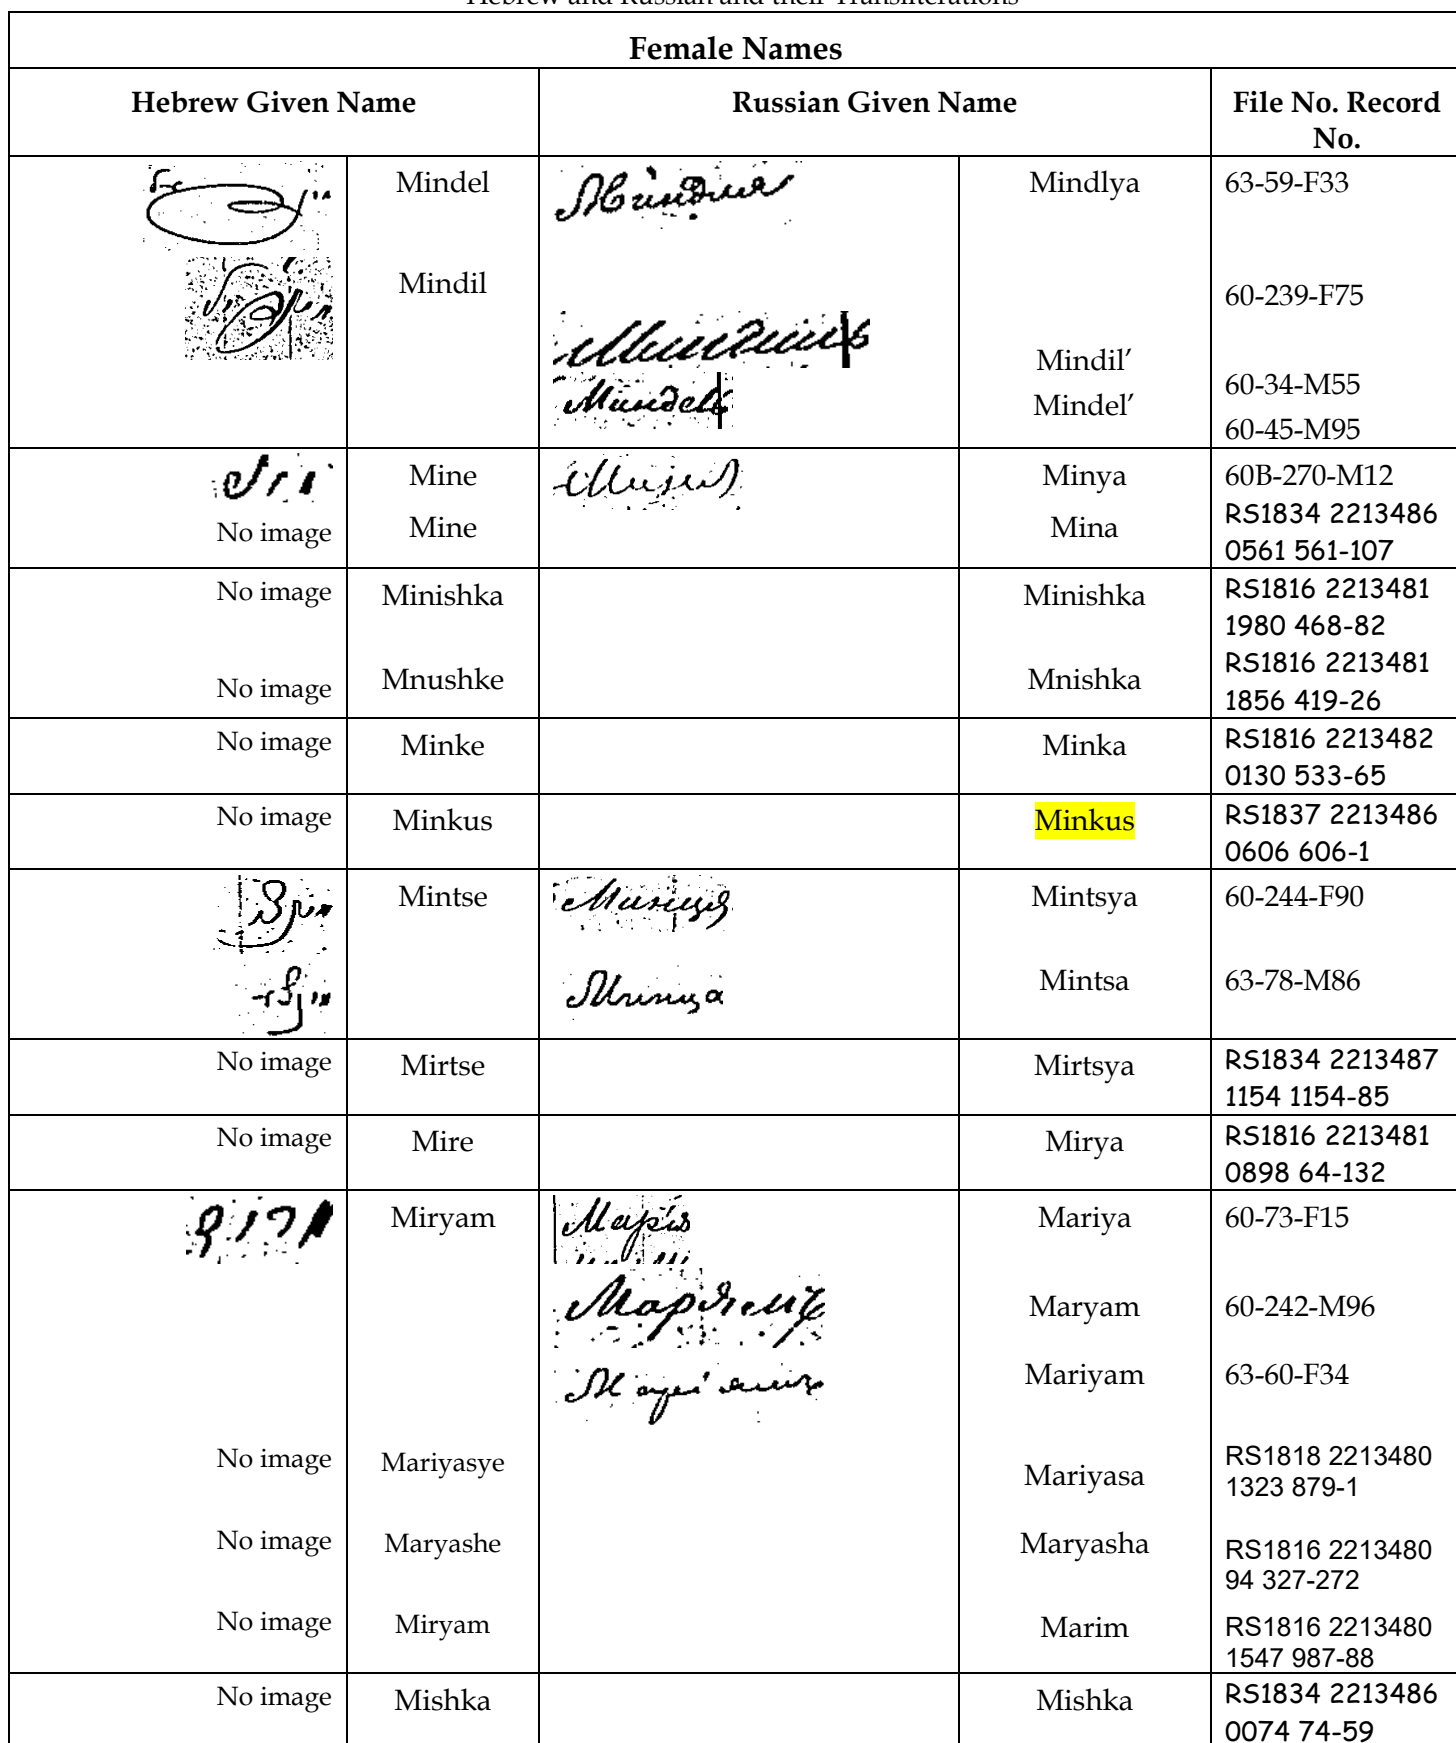 Hebrew and Russian and their Transliterations
Female Names
Hebrew Given Name Russian Given Name File No. Record No.
Mindel Миндля Mindlya 63-59-F33
Mindil 60-239-F75
Миндиль Mindil’ 60-34-M55
Миндель Mindel’ 60-45-M95
מינע Mine Миня Minya 60B-270-M12
No image Mine Mina RS1834 2213486 0561 561-107
No image Minishka Minishka RS1816 2213481 1980 468-82
No image Mnushke Mnishka RS1816 2213481 1856 419-26
No image Minke Minka RS1816 2213482 0130 533-65
No image Minkus Minkus RS1837 2213486 0606 606-1
Mintse Минця Mintsya 60-244-F90
Минца Mintsa 63-78-M86
No image Mirtse Mirtsya RS1834 2213487 1154 1154-85
No image Mire Mirya RS1816 2213481 0898 64-132
מרים Miryam Марія Mariya 60-73-F15
Марямъ Maryam 60-242-M96
Маріямъ Mariyam 63-60-F34
No image Mariyasye Mariyasa RS1818 2213480 1323 879-1
No image Maryashe Maryasha RS1816 2213480 94 327-272
No image Miryam Marim RS1816 2213480 1547 987-88
No image Mishka Mishka RS1834 2213486 0074 74-59